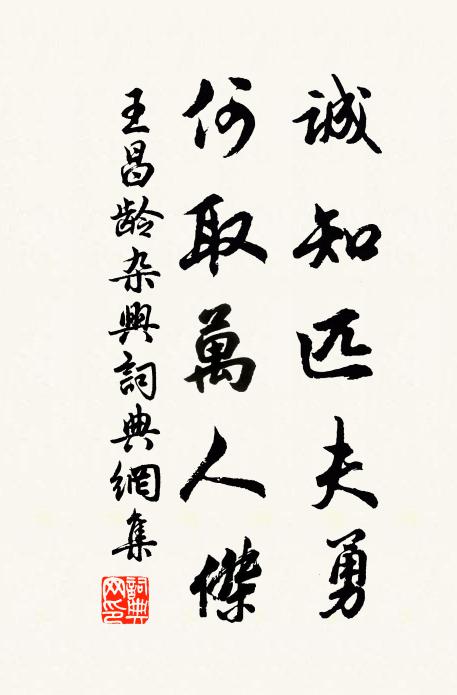 誠知匹夫勇
何取萬人傑
王昌龄杂興詞典網集
詞典
网印